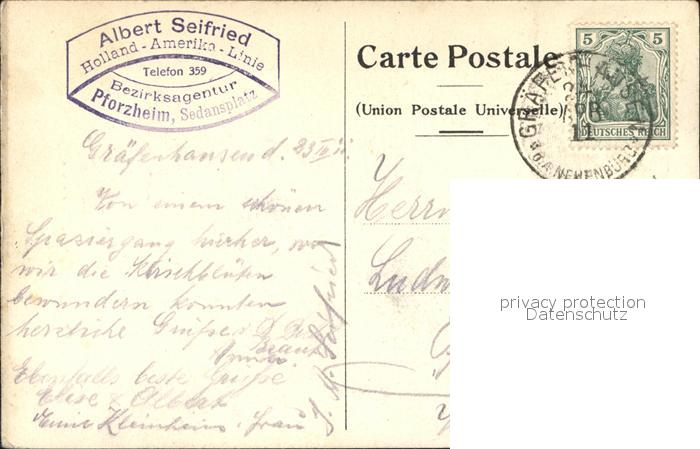 Albert Seifried
Holland-Amerika-Linie
Telefon 359
Bezirksagentur
Pforzheim, Sedansplatz
Carte Postale
(Union Postale Universelle)
5 5
DEUTSCHES REICH
GRÄFENHAUSEN
O.A. NEUENBÜRG
Gräfenhausen d. 23 IV 11
Von einem schönen
Spaziergang hierher, wo
wir die Kirschblüten
bewundern konnten
herzliche Grüße
Braut
Ebenfalls beste Grüße
Elise & Albert
Emil Kleinheins & Frau
Seifried
Herrn
Ludw
privacy protection
Datenschutz